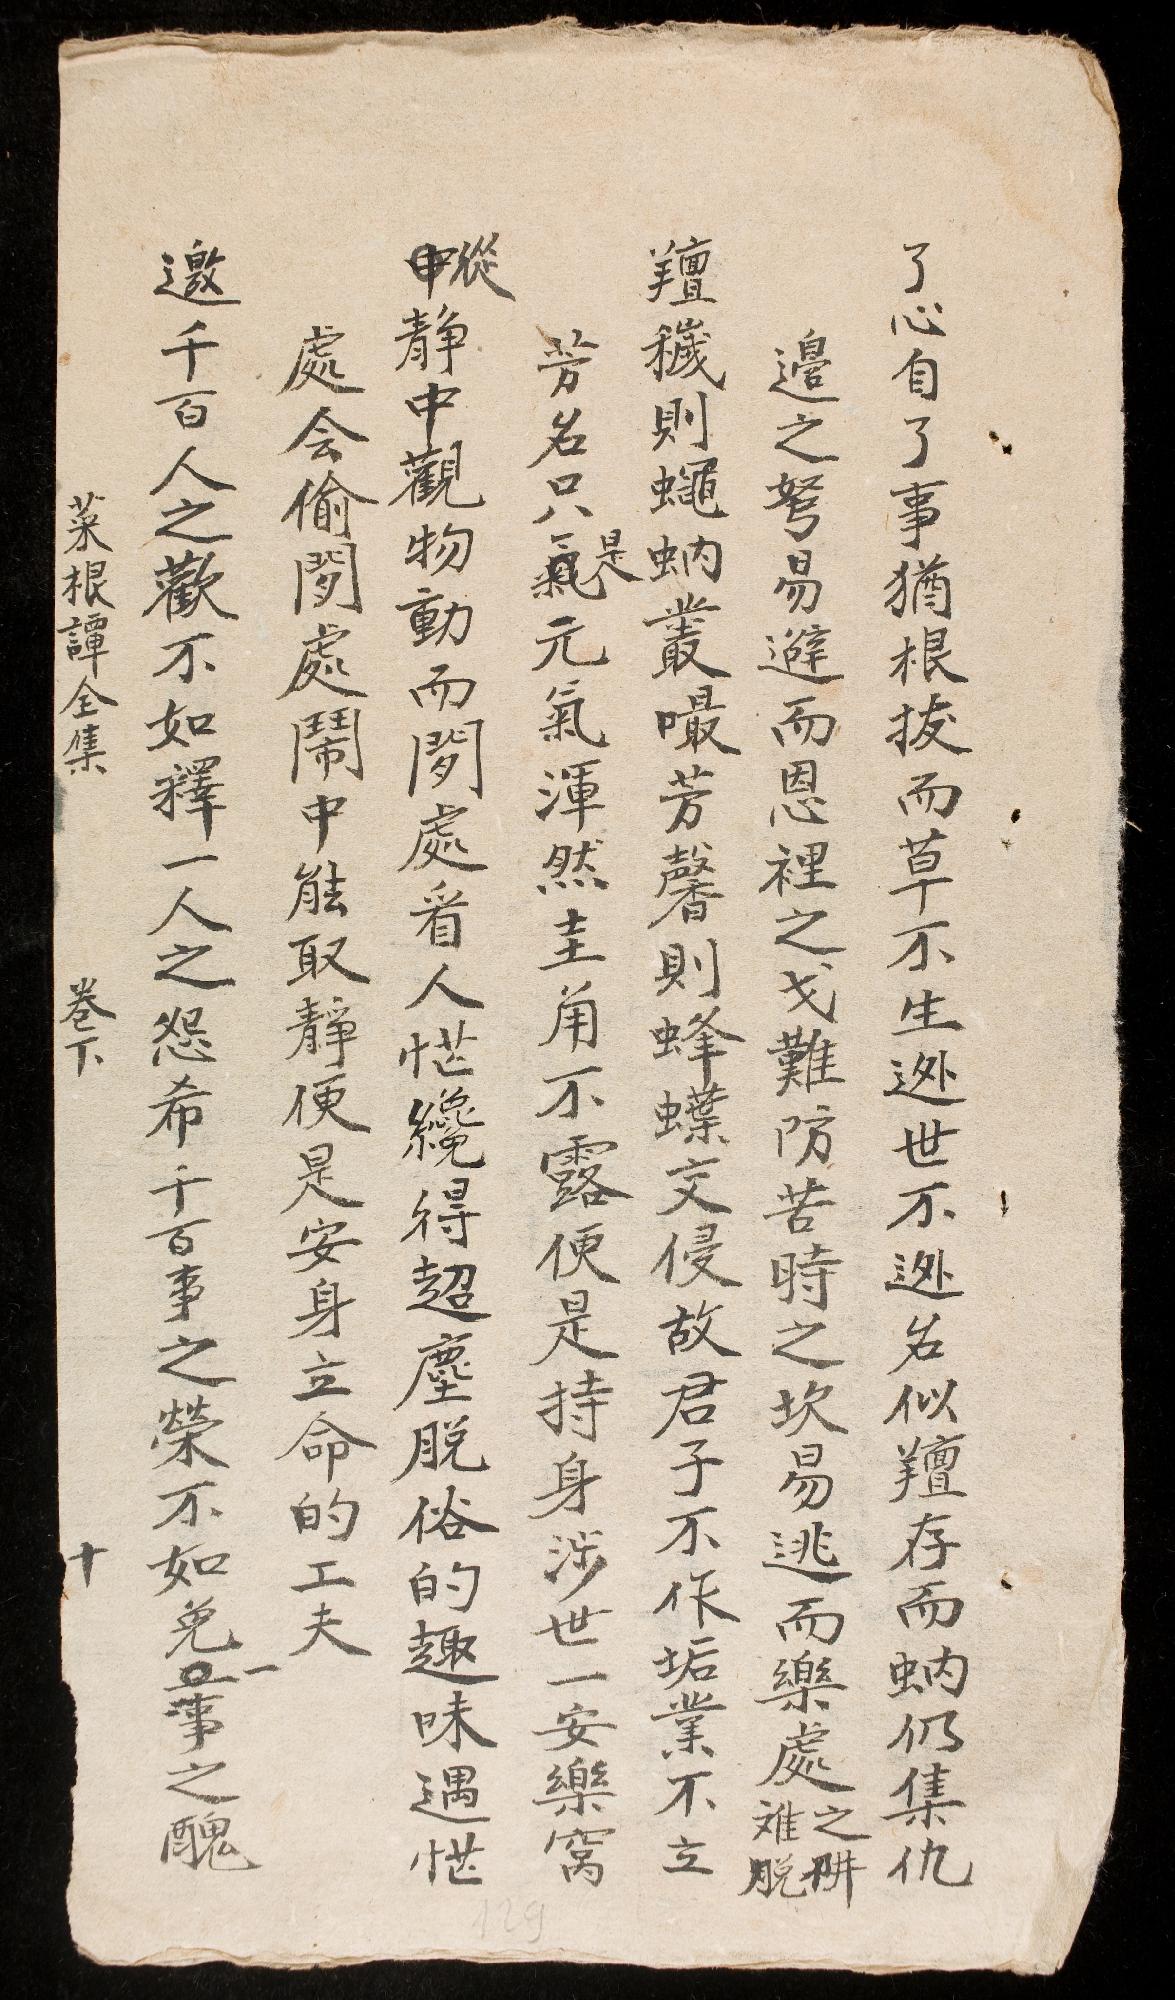 了心自了事猶根拔而草不生逊世不逊名似羶存而蚋仍集仇
邉之弩易避而恩裡之戈難防苦時之坎易逃而樂處之阱难脱
羶穢則蠅蚋叢嘬芳馨則蜂蝶交侵故君子不作垢業不立
芳名只是氣元氣渾然圭角不露便是持身涉世一安樂窩
從静中觀物動而閒處看人忙纔得超塵脱俗的趣味遇忙
處会偷閒處鬧中能取靜便是安身立命的工夫
邀千百人之歡不如釋一人之怨希千百事之榮不如免一事之醜
菜根譚全集 卷下 十
129